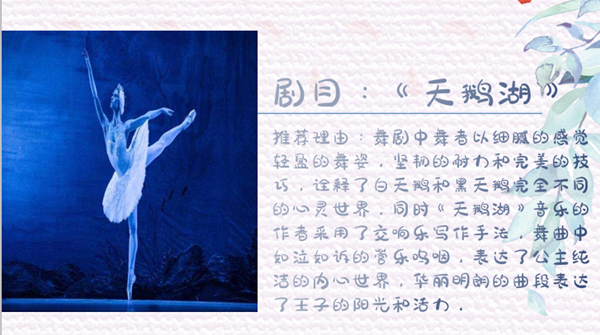 剧目：《天鹅湖》
推荐理由：舞剧中舞者以细腻的感觉
轻盈的舞姿，坚韧的耐力和完美的技
巧，诠释了白天鹅和黑天鹅完全不同
的心灵世界．同时《天鹅湖》音乐的
作者采用了交响乐写作手法，舞曲中
如泣如诉的管乐呜咽，表达了公主纯
洁的内心世界，华丽明朗的曲段表达
了王子的阳光和活力．